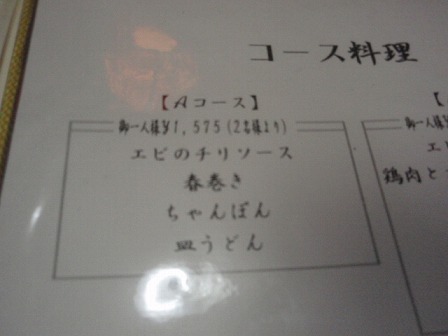 コース料理
【Aコース】
御一人様¥1,575(2名様より)
エビのチリソース
春巻き
ちゃんぽん
皿うどん
【
御一人様
エ
鶏肉と